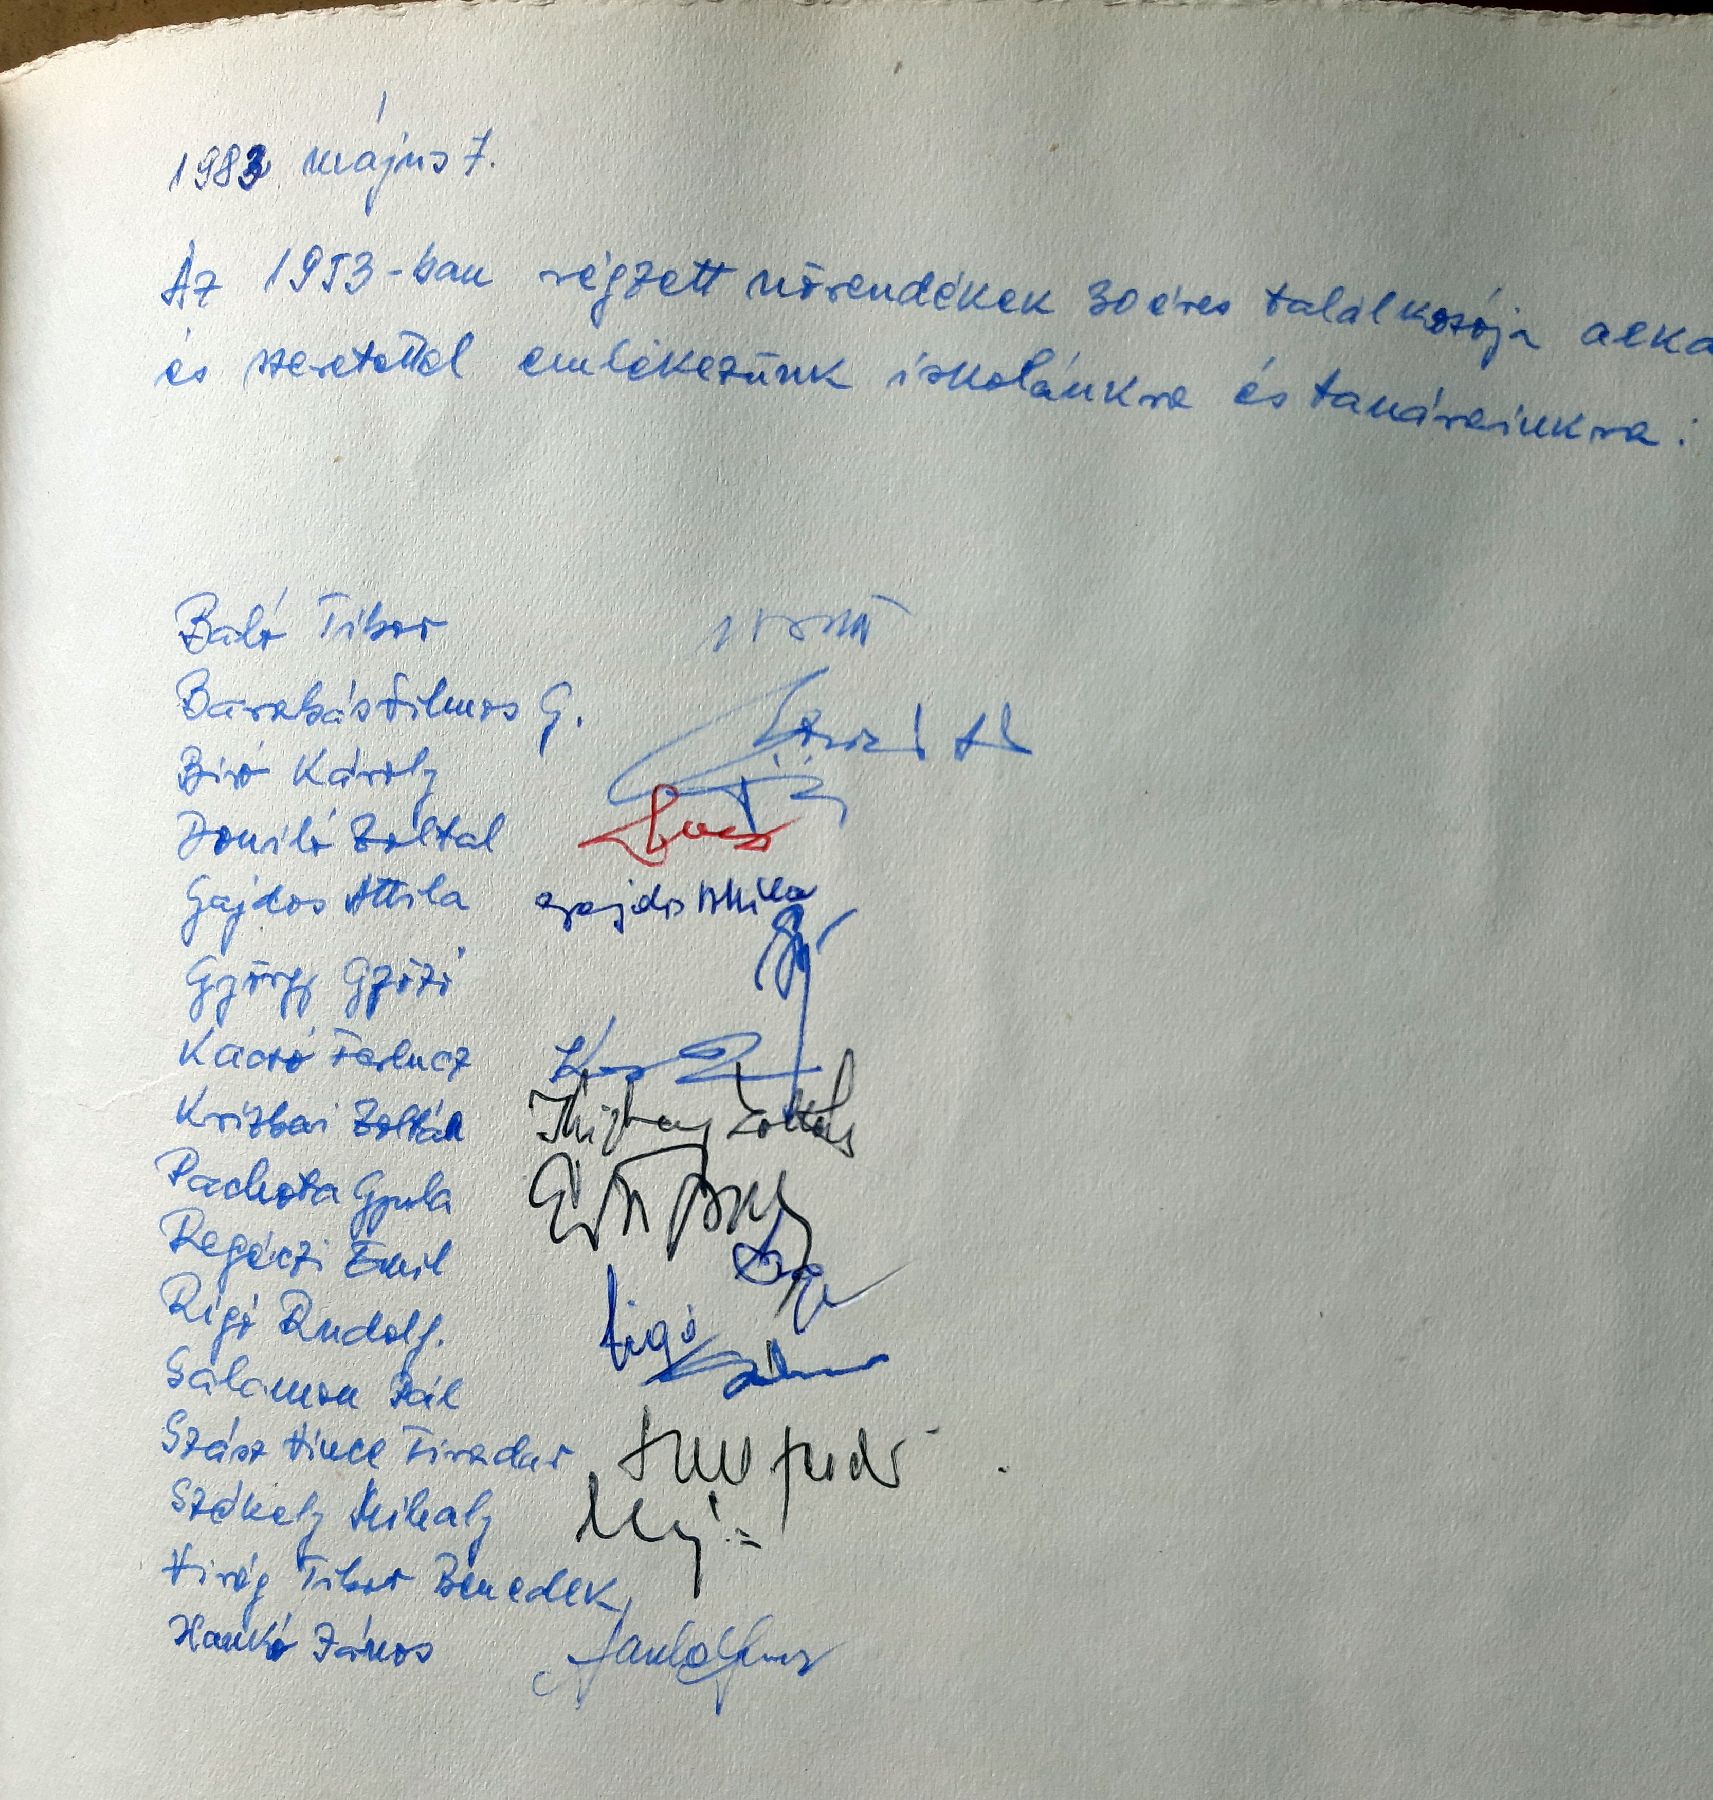 1983 május 7.
Az 1953-ban végzett növendékek 30 éves találkozója alka
és szeretettel emlékezünk iskolánkra és tanárainkra:
Baló Tibor
Barabás Vilmos G.
Biró Károly
Zoltal
Gajdos Attila Gajdos Attila
György Győző
Kacsó Ferencz
Krizbai Zoltán Krizbay Zoltán
Pachota Gyula
Regéczi Emil
Rigó Rudolf. Rigó
Salamon Pál
Szász Vince Tivadar
Székely Mihaly
Virág Tibor Benedek
Hankó János Hankó János